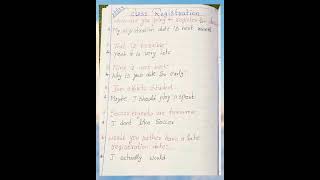 Class Registration
When are you going to register for
My registration date is next month
That is terrible
Yeah it is very late
Mine is next week
Why is your date so early
I am athlete student
Maybe I should play a sport
Soccer tryouts are tomorrow
I dont like Soccer
Would you rather have a late
registration date
I actually would